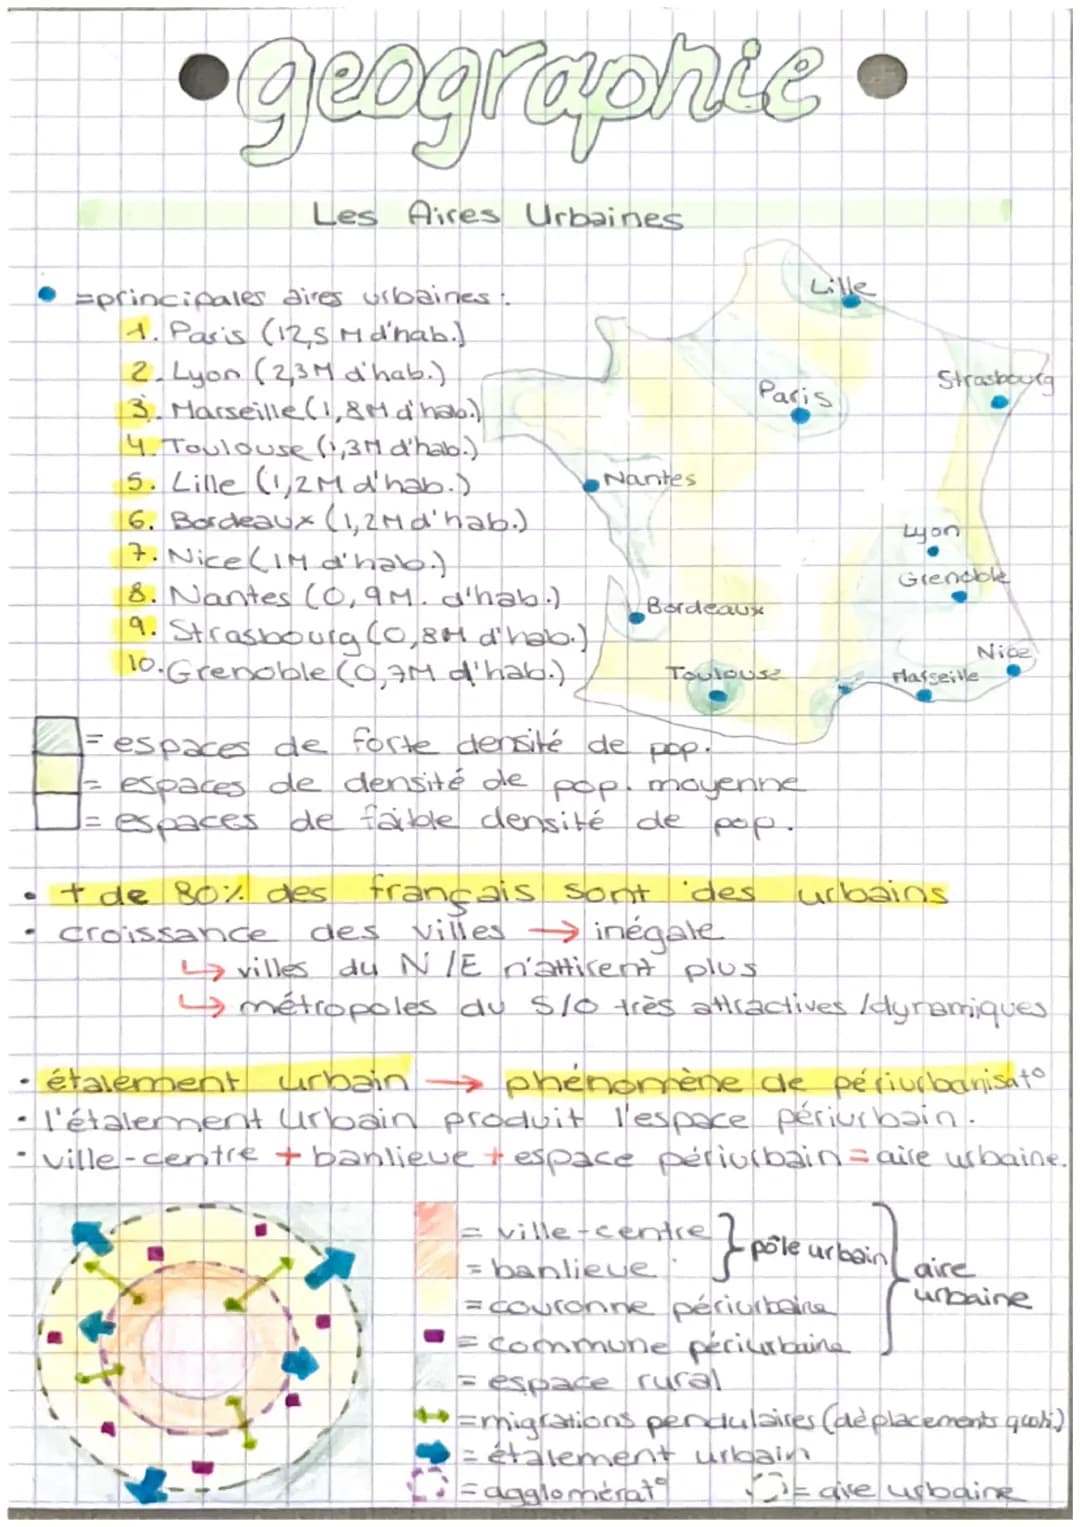 geographie
Les Aires Urbaines
=principales aires urbaines :
1. Paris (12,5 M d'hab.)
2. Lyon (2,3M d'hab.)
3. Marseille (1,8M d'hab.)
4. Toulouse (1,3M d'hab.)
5. Lille (1,2M d'hab.)
6. Bordeaux (1,2M d'hab.)
7. Nice (1M d'hab.)
8. Nantes (0,9M. d'hab.)
9. Strasbourg (0,8M d'hab.)
10. Grenoble (0,7M d'hab.)
Lille
Strasbourg
Paris
Nantes
Lyon
Grenoble
Bordeaux
Nice
Toulouse
Marseille
= espaces de forte densité de pop.
= espaces de densité de pop. moyenne
= espaces de faible densité de pop.
• + de 80% des français sont des urbains
• croissance des villes → inégale
↳ villes du N/E n'attirent plus
↳ métropoles du S/O très attractives /dynamiques
• étalement urbain → phénomène de périurbanisat°
• l'étalement urbain produit l'espace périurbain.
• ville-centre + banlieue + espace périurbain = aire urbaine.
= ville-centre } pôle urbain
= banlieue
= couronne périurbaine
= commune périurbaine
} aire urbaine
= espace rural
= migrations pendulaires (déplacements quoti.)
= étalement urbain
= agglomérat° = aire urbaine